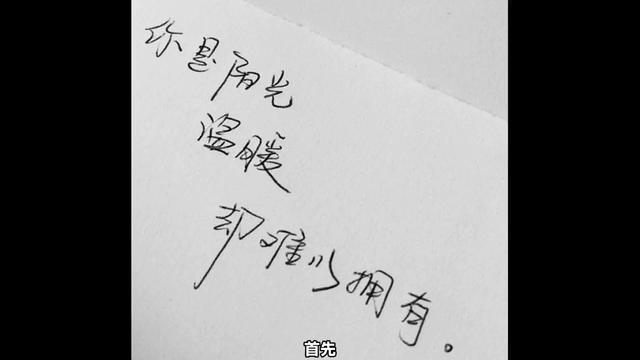 你是阳光
温暖
却难以拥有。
首先